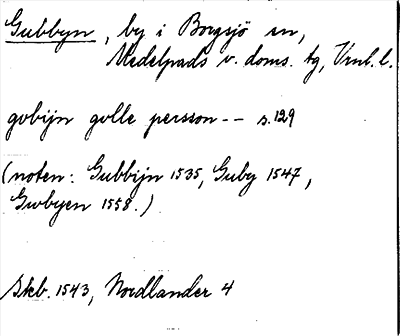 Gubbyn, by i Borgsjö sn,
Medelpads v. doms. tg, Vrnl. l.
gobijn golle persson -- s. 129
(noten: Gubbijn 1535, Guby 1547,
Gwbyen 1558.)
Skb. 1543, Nordlander 4